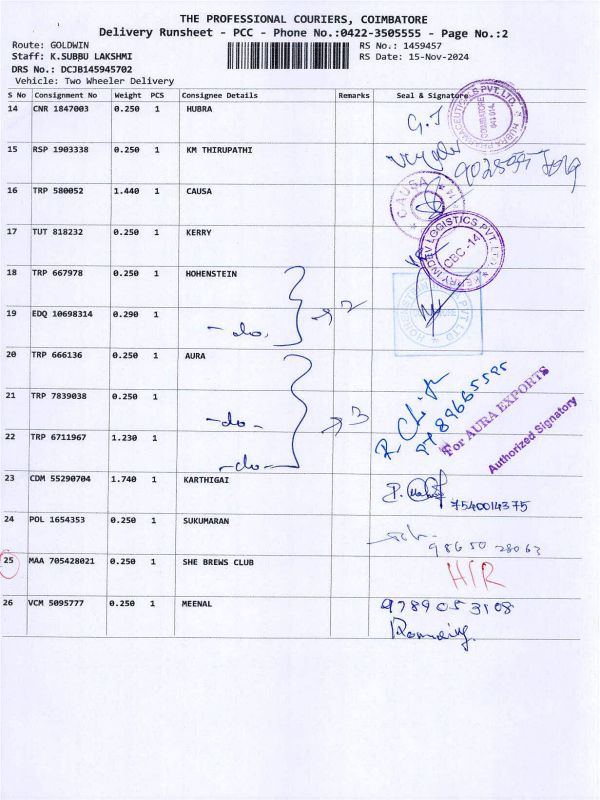 THE PROFESSIONAL COURIERS, COIMBATORE
Delivery Runsheet - PCC - Phone No.:0422-3505555 - Page No.:2
Route: GOLDWIN
RS No.: 1459457
Staff: K.SUBBU LAKSHMI
RS Date: 15-Nov-2024
DRS No.: DCJB145945702
Vehicle: Two Wheeler Delivery
S No Consignment No Weight PCS Consignee Details Remarks Seal & Signature
14 CNR 1847003 0.250 1 HUBRA G.J
COIMBATORE
15 RSP 1903338 0.250 1 KM THIRUPATHI
16 TRP 580052 1.440 1 CAUSA
CAUSA
17 TUT 818232 0.250 1 KERRY
KERRY INDEV LOGISTICS PVT. LTD.
CBC - 14
18 TRP 667978 0.250 1 HOHENSTEIN
19 EDQ 10698314 0.290 1 -do. 2
20 TRP 666136 0.250 1 AURA
21 TRP 7839038 0.250 1 -do- 3
For AURA EXPORTS
Authorized Signatory
22 TRP 6711967 1.230 1 -do-
23 CDM 55290704 1.740 1 KARTHIGAI
7540014375
24 POL 1654353 0.250 1 SUKUMARAN
98650 28063
25 MAA 705428021 0.250 1 SHE BREWS CLUB H/R
26 VCM 5095777 0.250 1 MEENAL 9789053108